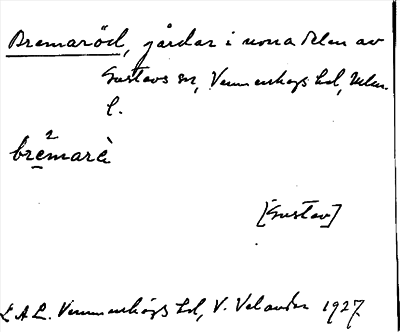 Bremaröd, gårdar i norra delen av
Gustavs sn, Vemmenhögs hd, Mlm.
l.
brèmarè
[Gustav]
L A L. Vemmenhögs hd, V. Velander 1927